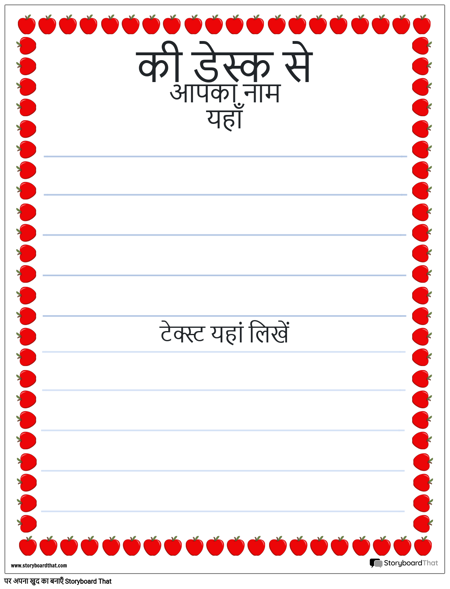 की डेस्क से
आपका नाम
यहाँ
टेक्स्ट यहां लिखें
www.storyboardthat.com
StoryboardThat
पर अपना खुद का बनाएँ Storyboard That